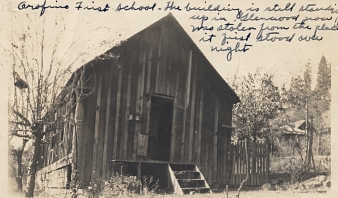 Orofino First School - The building is still standing
up in Glenwood now,
was stolen from the place
it first stood over
night